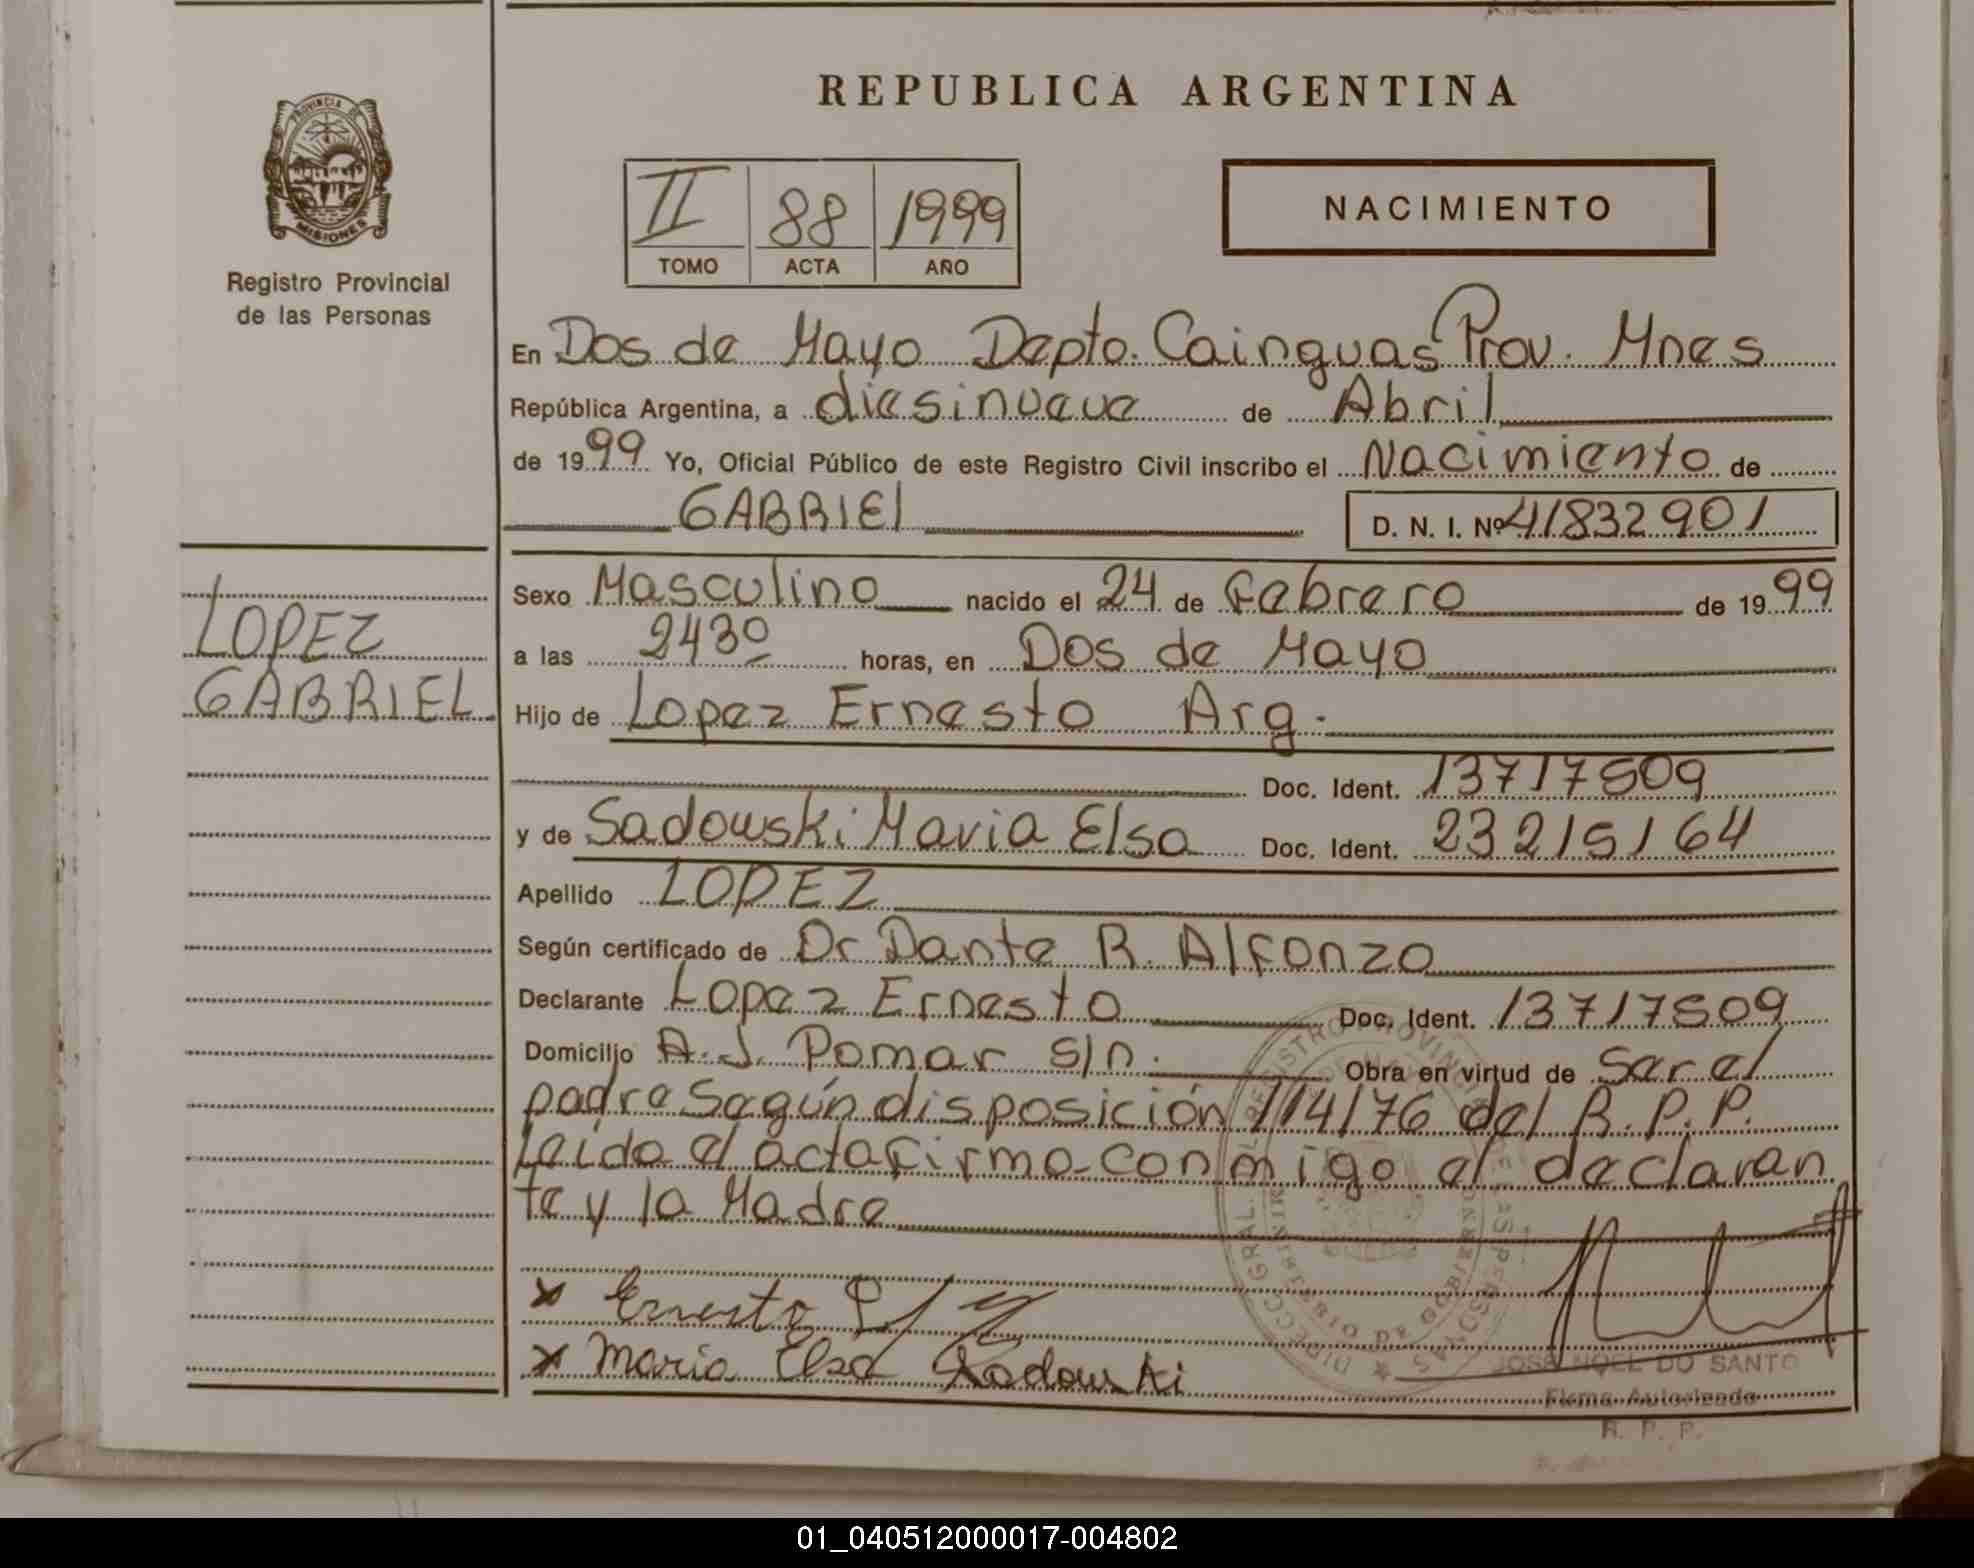 REPUBLICA ARGENTINA
PROVINCIA DE
MISIONES
Registro Provincial
de las Personas
II 88 1999
TOMO ACTA AÑO
NACIMIENTO
En Dos de Mayo Depto. Cainguas Prov. Mnes
República Argentina, a diesinueve de Abril
de 1999 Yo, Oficial Público de este Registro Civil inscribo el Nacimiento de
GABRIEl D. N. I. Nº 41832901
LOPEZ
GABRIEL
Sexo Masculino nacido el 24 de Febrero de 1999
a las 2430 horas, en Dos de Mayo
Hijo de Lopez Ernesto Arg.
Doc. Ident. 13717509
y de Sadowski Maria Elsa Doc. Ident. 23215164
Apellido LOPEZ
Según certificado de Dr Dante R. Alfonzo
Declarante Lopez Ernesto Doc. Ident. 13717509
Domicilio A. J. Pomar s/n. Obra en virtud de Ser el
padre Según disposición 114/76 del R.P.P.
Leida el acta firma conmigo el declaran
te y la Madre
x Ernesto
x Maria Elsa Sadowski
JOSE NOEL DO SANTO
Firma Autorizada
R. P. P.
01_040512000017-004802